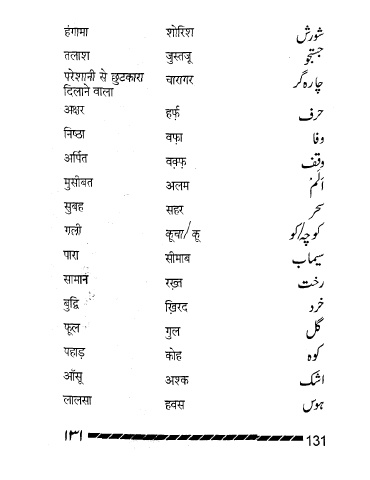 हंगामा शोरिश شورش
तलाश जुस्तजू جستجو
परेशानी से छुटकारा
दिलाने वाला चारागर چارہ گر
अक्षर हर्फ़ حرف
निष्ठा वफ़ा وفا
अर्पित वक़्फ़ وقف
मुसीबत अलम اَلَمْ
सुबह सहर سحر
गली कूचा/कू کوچہ/کو
पारा सीमाब سیماب
सामान रख़्त رخت
बुद्वि ख़िरद خرد
फूल गुल گل
पहाड़ कोह کوہ
आँसू अश्क اشک
लालसा हवस ہوس
१३१ 131